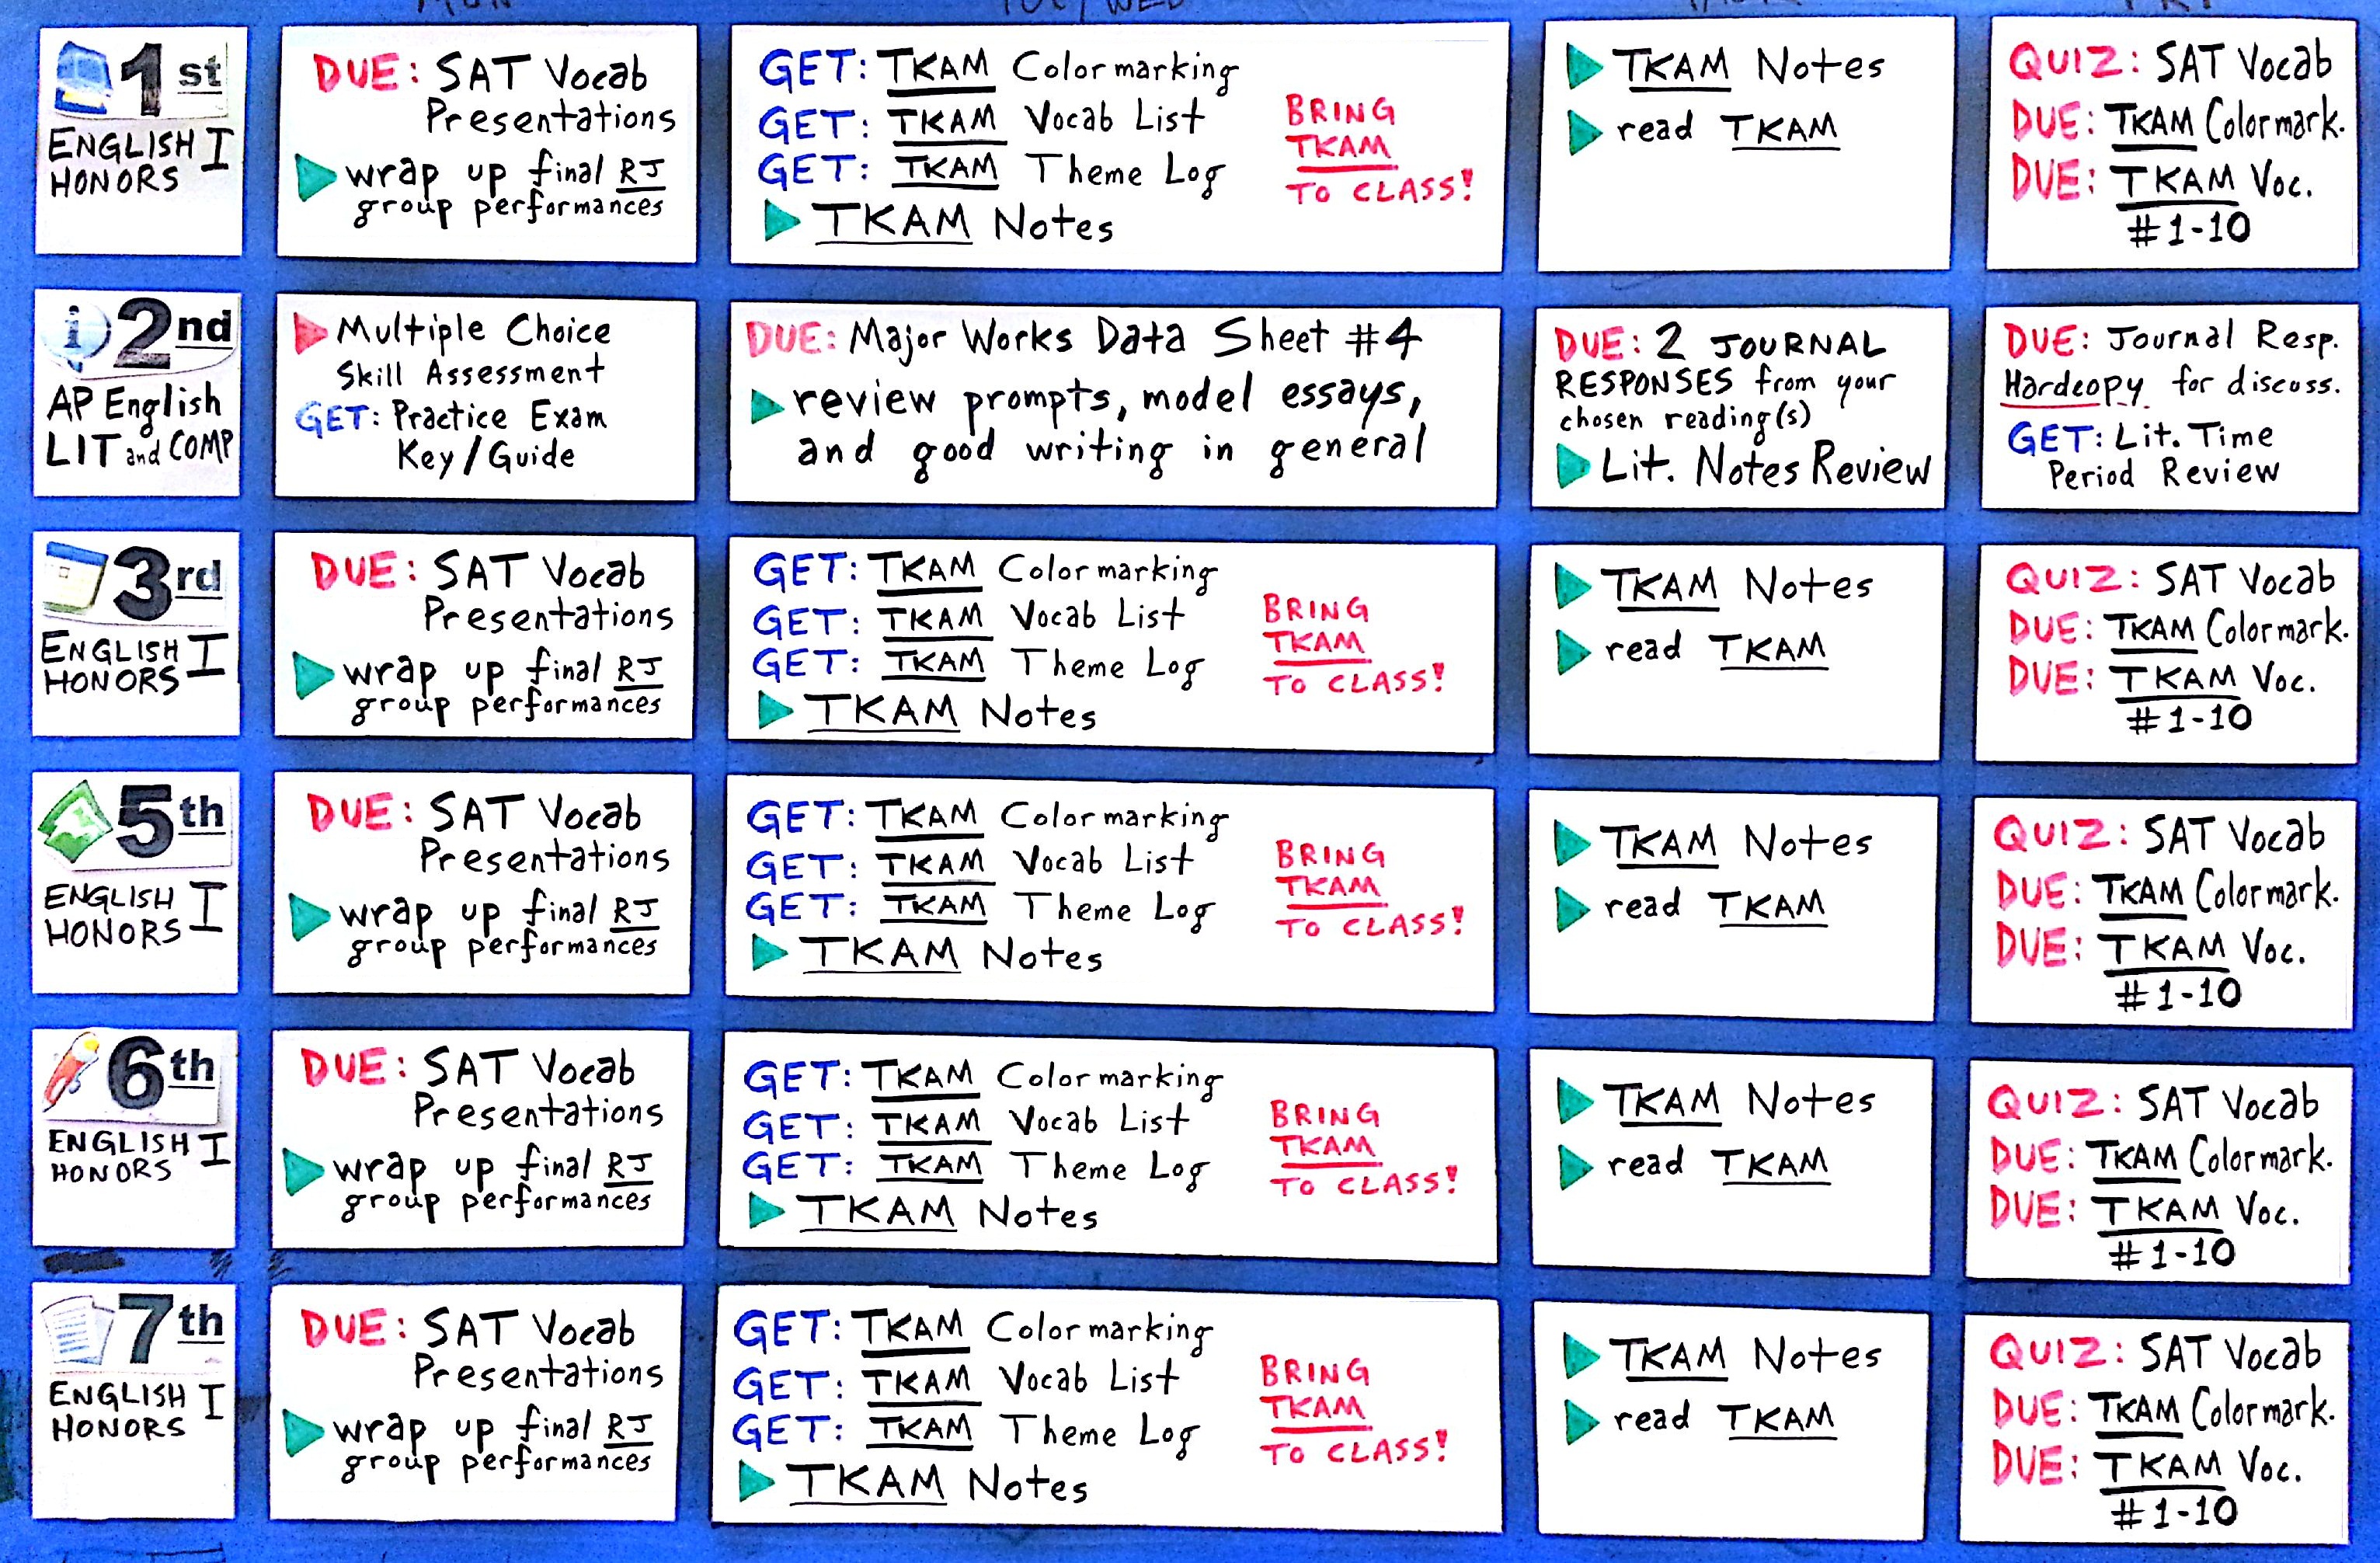 MON
TUE/WED
THUR
FRI
1st
ENGLISH I
HONORS
DUE: SAT Vocab
Presentations
wrap up final RJ
group performances
GET: TKAM Colormarking
GET: TKAM Vocab List
GET: TKAM Theme Log
TKAM Notes
BRING
TKAM
TO CLASS!
TKAM Notes
read TKAM
QUIZ: SAT Vocab
DUE: TKAM Colormark.
DUE: TKAM Voc.
#1-10
2nd
AP English
LIT and COMP
Multiple Choice
Skill Assessment
GET: Practice Exam
Key/Guide
DUE: Major Works Data Sheet #4
review prompts, model essays,
and good writing in general
DUE: 2 JOURNAL
RESPONSES from your
chosen reading(s)
Lit. Notes Review
DUE: Journal Resp.
Hardcopy for discuss.
GET: Lit. Time
Period Review
3rd
ENGLISH I
HONORS
DUE: SAT Vocab
Presentations
wrap up final RJ
group performances
GET: TKAM Colormarking
GET: TKAM Vocab List
GET: TKAM Theme Log
TKAM Notes
BRING
TKAM
TO CLASS!
TKAM Notes
read TKAM
QUIZ: SAT Vocab
DUE: TKAM Colormark.
DUE: TKAM Voc.
#1-10
5th
ENGLISH I
HONORS
DUE: SAT Vocab
Presentations
wrap up final RJ
group performances
GET: TKAM Colormarking
GET: TKAM Vocab List
GET: TKAM Theme Log
TKAM Notes
BRING
TKAM
TO CLASS!
TKAM Notes
read TKAM
QUIZ: SAT Vocab
DUE: TKAM Colormark.
DUE: TKAM Voc.
#1-10
6th
ENGLISH I
HONORS
DUE: SAT Vocab
Presentations
wrap up final RJ
group performances
GET: TKAM Colormarking
GET: TKAM Vocab List
GET: TKAM Theme Log
TKAM Notes
BRING
TKAM
TO CLASS!
TKAM Notes
read TKAM
QUIZ: SAT Vocab
DUE: TKAM Colormark.
DUE: TKAM Voc.
#1-10
7th
ENGLISH I
HONORS
DUE: SAT Vocab
Presentations
wrap up final RJ
group performances
GET: TKAM Colormarking
GET: TKAM Vocab List
GET: TKAM Theme Log
TKAM Notes
BRING
TKAM
TO CLASS!
TKAM Notes
read TKAM
QUIZ: SAT Vocab
DUE: TKAM Colormark.
DUE: TKAM Voc.
#1-10